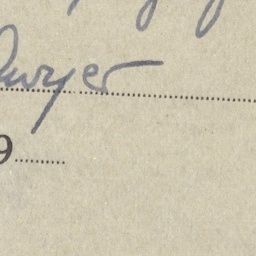 Dwyer
9